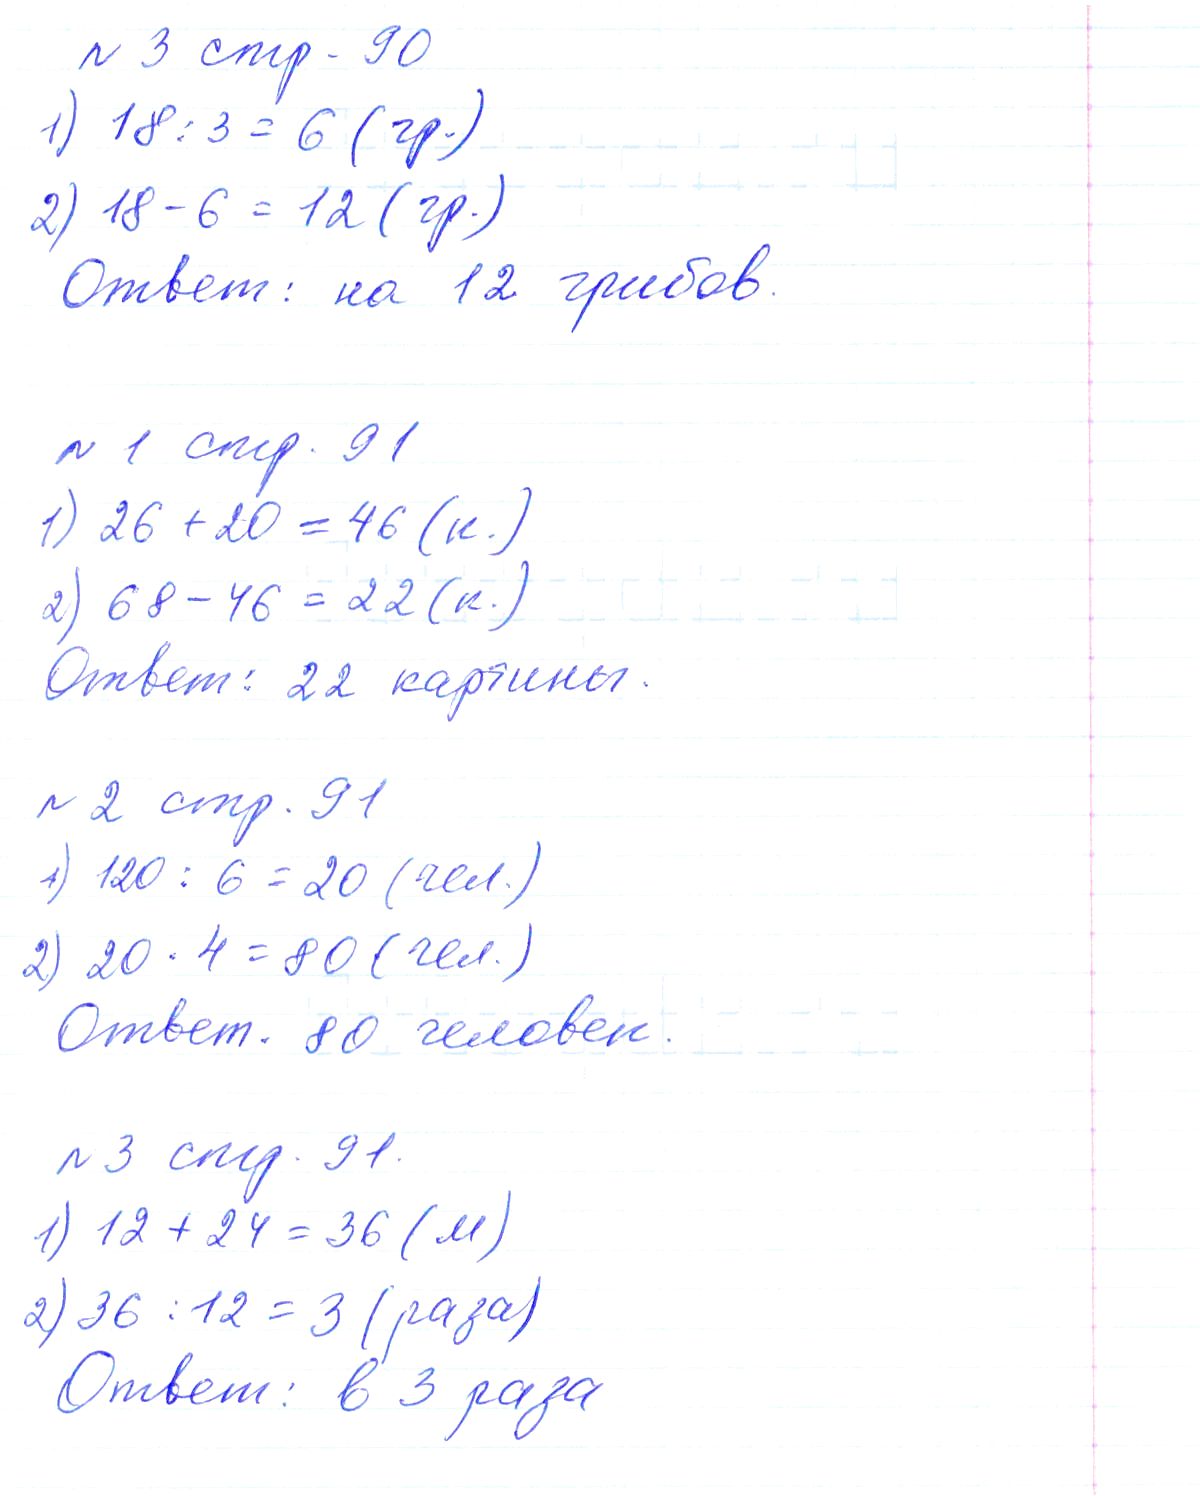 № 3 стр. 90
1) 18 : 3 = 6 (гр.)
2) 18 - 6 = 12 (гр.)
Ответ: на 12 грибов.
№ 1 стр. 91
1) 26 + 20 = 46 (к.)
2) 68 - 46 = 22 (к.)
Ответ: 22 картины.
№ 2 стр. 91
1) 120 : 6 = 20 (чел.)
2) 20 · 4 = 80 (чел.)
Ответ. 80 человек.
№ 3 стр. 91.
1) 12 + 24 = 36 (м)
2) 36 : 12 = 3 (раза)
Ответ: в 3 раза